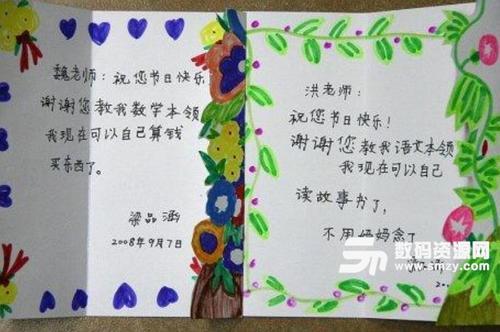 魏老师：祝您节日快乐
谢谢您教我数学本领
我现在可以自己算钱
买东西了。
梁品涵
2008年9月7日
洪老师：
祝您节日快乐！
谢谢您教我语文本领
我现在可以自己
读故事书了，
不用妈妈念了
数码资源网
www.smzy.com